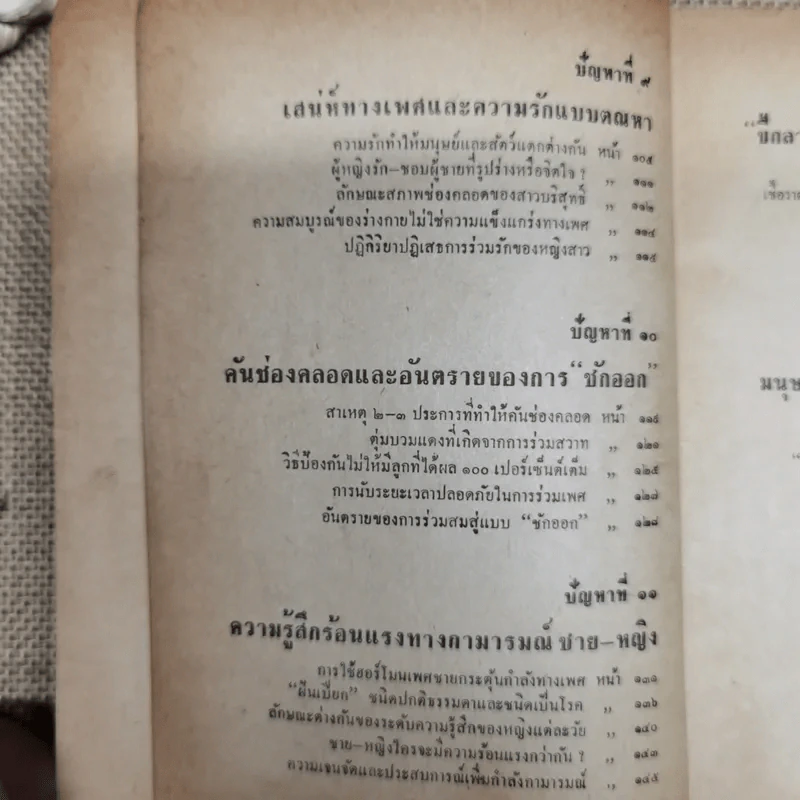 ปัญหาที่ ๙
เสน่ห์ทางเพศและความรักแบบตณหา
ความรักทำให้มนุษย์และสัตว์แตกต่างกัน หน้า ๑๐๕
ผู้หญิงรัก–ชอบผู้ชายที่รูปร่างหรือจิตใจ ? „ ๑๑๑
ลักษณะสภาพช่องคลอดของสาวบริสุทธิ์ „ ๑๑๒
ความสมบูรณ์ของร่างกายไม่ใช่ความแข็งแกร่งทางเพศ „ ๑๑๔
ปฏิกิริยาปฏิเสธการร่วมรักของหญิงสาว „ ๑๑๕
ปัญหาที่ ๑๐
คันช่องคลอดและอันตรายของการ “ชักออก”
สาเหตุ ๒–๓ ประการที่ทำให้คันช่องคลอด หน้า
ตุ่มบวมแดงที่เกิดจากการร่วมสวาท „ ๑๒๑
วิธีป้องกันไม่ให้มีลูกที่ได้ผล ๑๐๐ เปอร์เซ็นต์เต็ม „ ๑๒๕
การนับระยะเวลาปลอดภัยในการร่วมเพศ „
อันตรายของการร่วมสมสู่แบบ “ชักออก” „ ๑๒๘
ปัญหาที่ ๑๑
ความรู้สึกร้อนแรงทางกามารมณ์ ชาย–หญิง
การใช้ฮอร์โมนเพศชายกระตุ้นกำลังทางเพศ หน้า ๑๓๑
“ฝันเปียก” ชนิดปกติธรรมดาและชนิดเป็นโรค „ ๑๓๖
ลักษณะต่างกันของระดับความรู้สึกของหญิงแต่ละวัย „ ๑๔๐
ชาย–หญิงใครจะมีความร้อนแรงกว่ากัน ? „ ๑๔๓
ความเจนจัดและประสบการณ์เพิ่มกำลังกามารมณ์ „ ๑๔๕